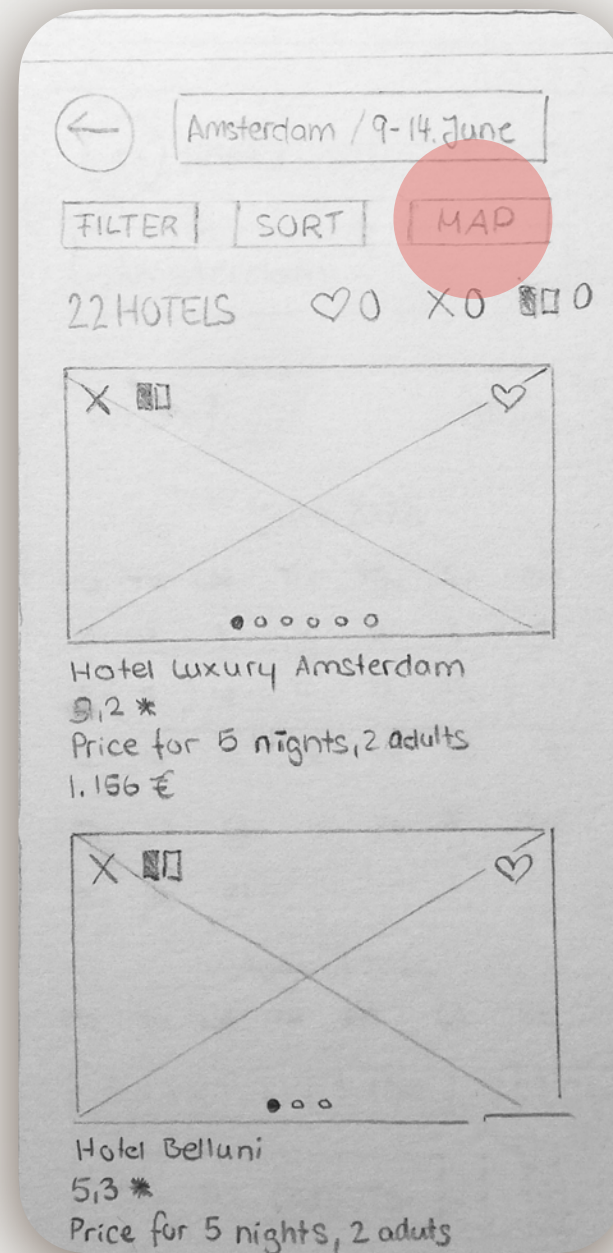 Amsterdam / 9-14. June
FILTER SORT MAP
22 HOTELS 0 X 0 0
X
Hotel Luxury Amsterdam
9,2 *
Price for 5 nights, 2 adults
1.156 €
X
Hotel Belluni
5,3 *
Price for 5 nights, 2 aduts